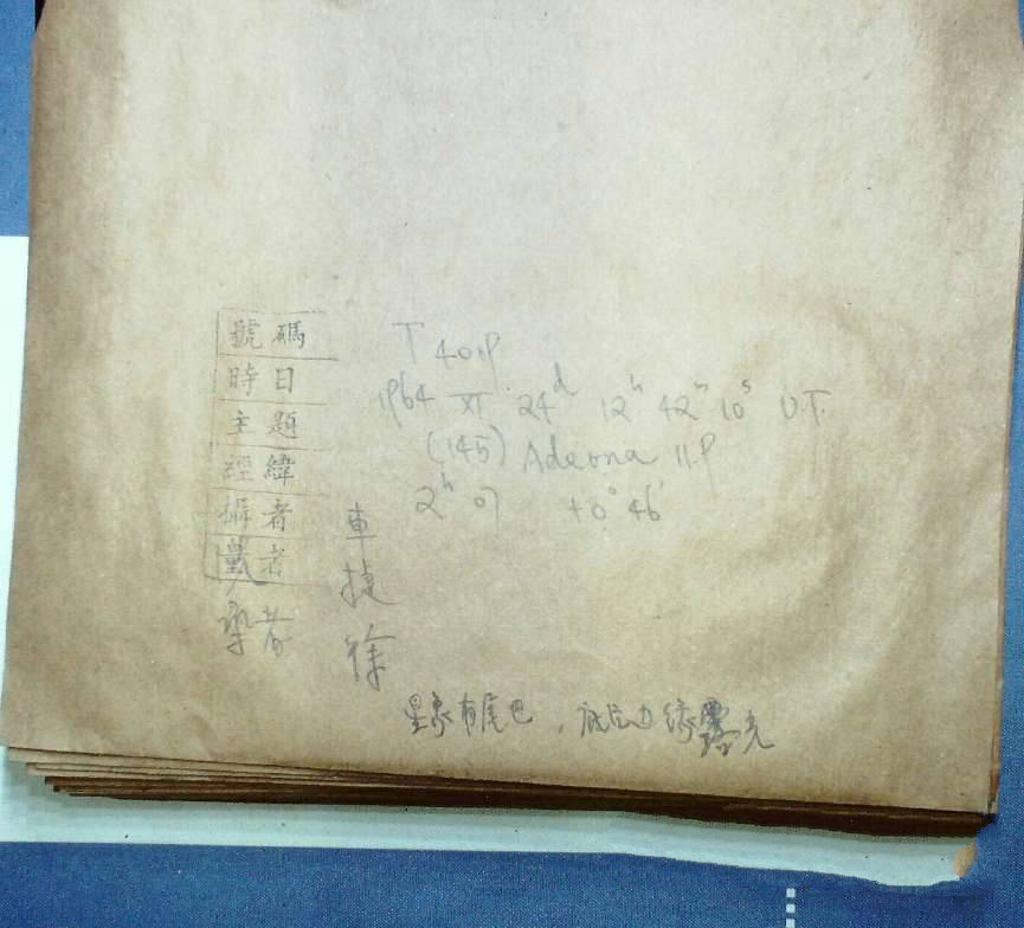 號碼 T 401P
時日 1964 XI 24ᵈ 12ʰ 42ᵐ 10ˢ U.T.
主題 (145) Adeona 11.P
經緯 2ʰ 07 +0° 46'
攝者 車
者 捷
者 徐
星象有尾巴，底片边缘露光